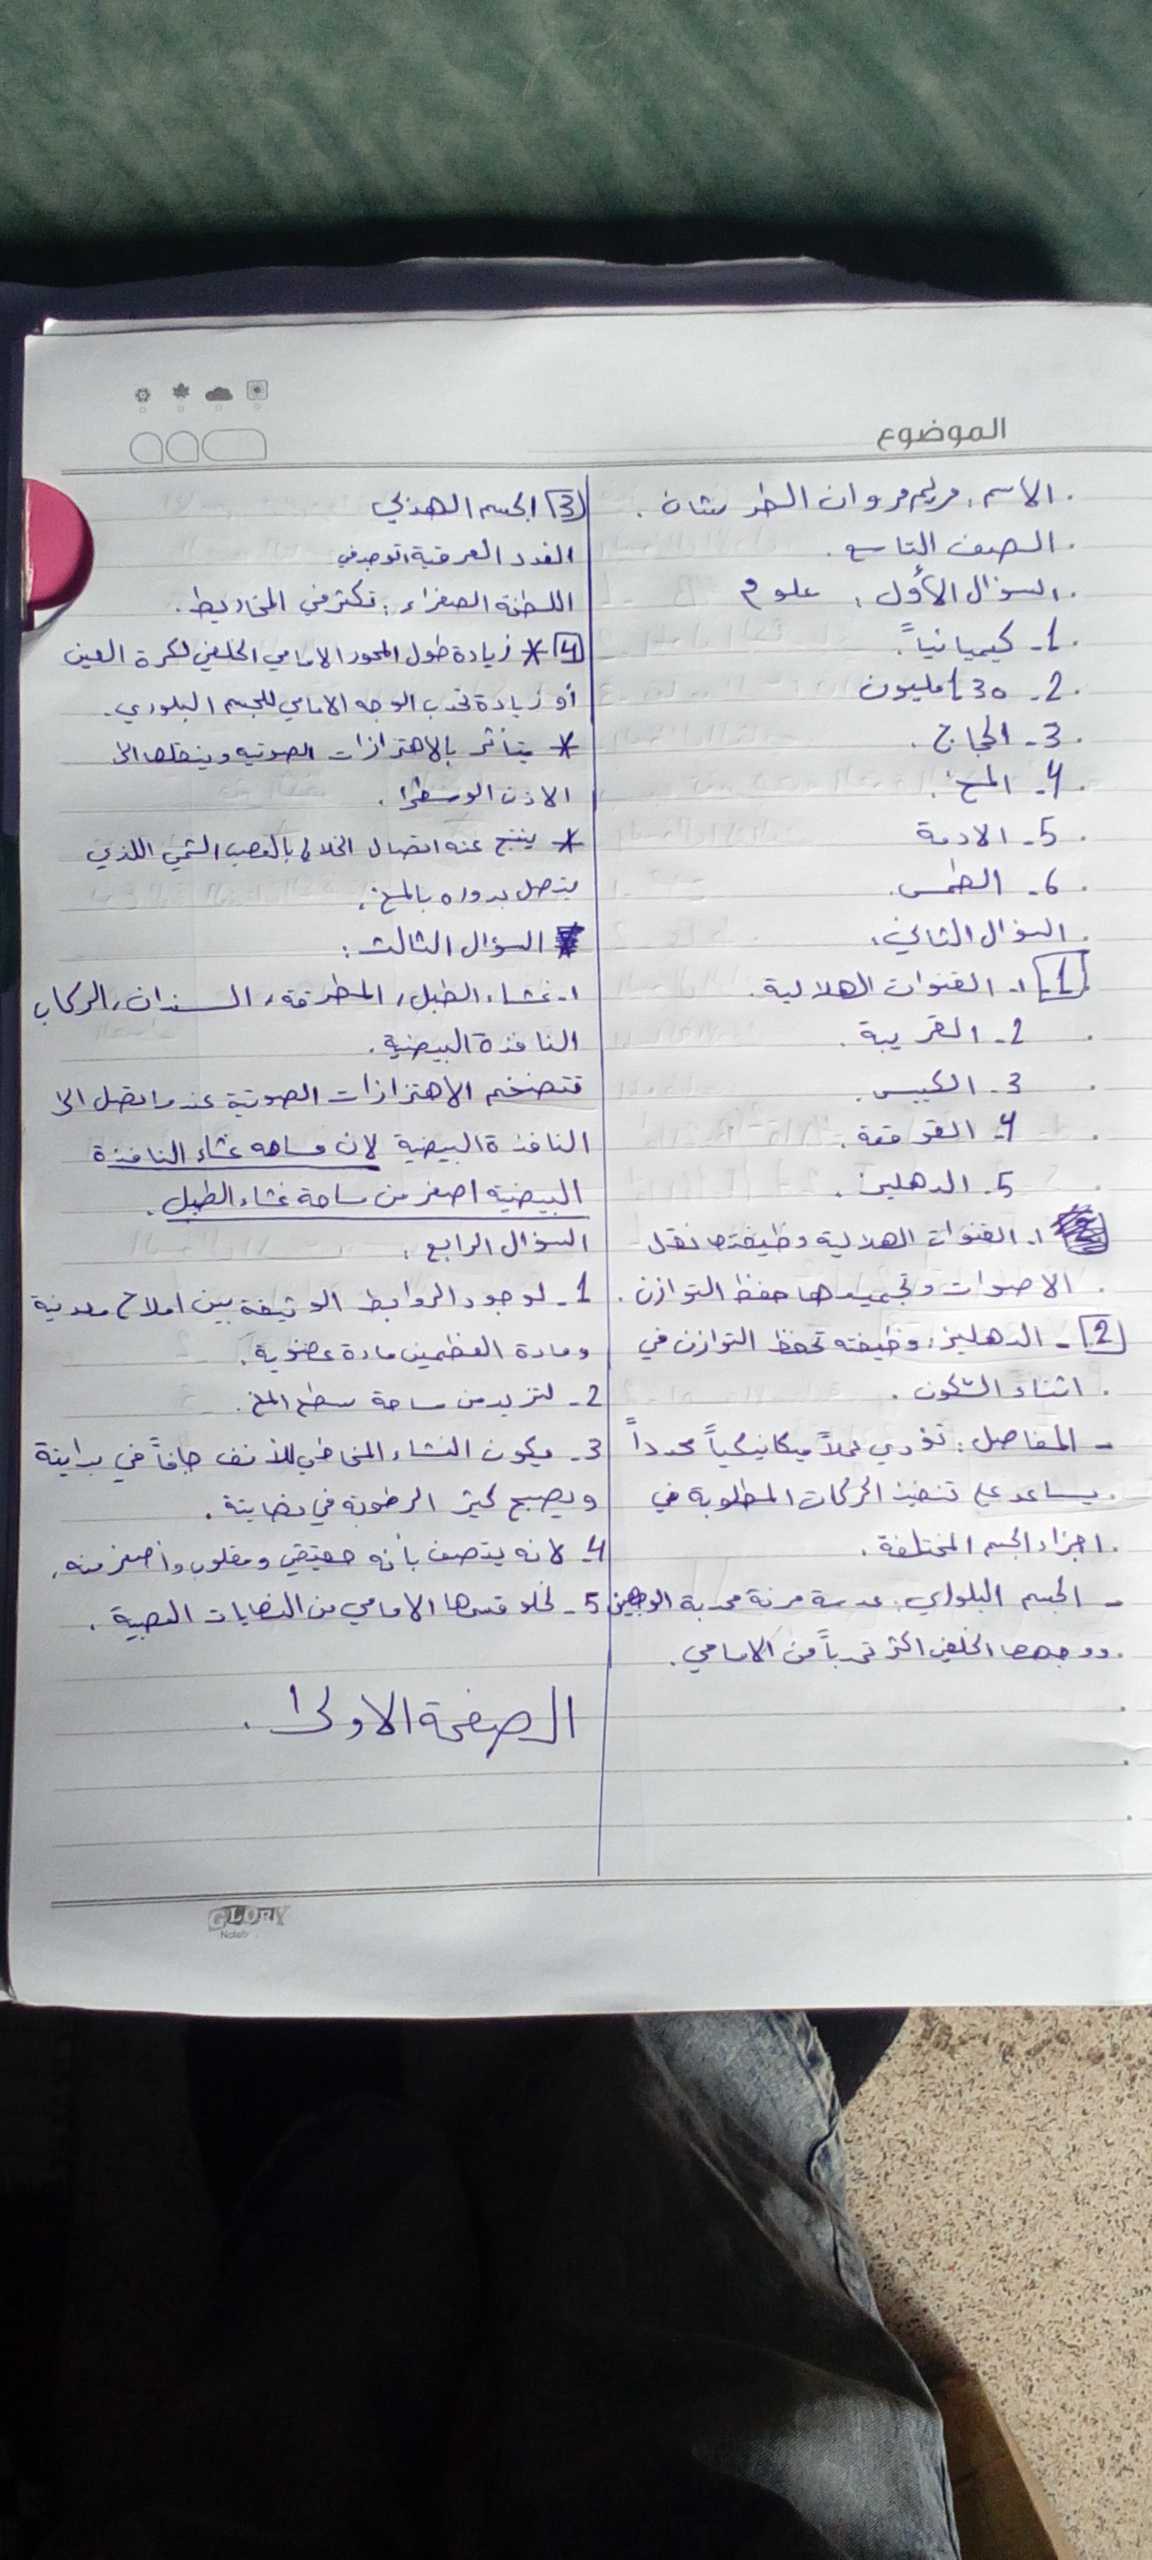 الموضوع
الاسم: مريم مروان الطرشان.
الصف التاسع.
السؤال الأول: علوم
1- كيميائياً.
2- 130 مليون
3- الحجاج.
4- المخ.
5- الادمة
6- الطمس.
السؤال الثاني:
1 1- القنوات الهلالية.
2- القريبة.
3- الكييس.
4- القوقعة.
5- الدهليز.
1- القنوات الهلالية وظيفتها نقل
الاصوات وتجميدها حفظ التوازن.
2 - الدهليز: وظيفته تحفظ التوازن في
اثناء السكون.
- المفاصل: تؤدي عملاً ميكانيكياً محدداً
يساعد على تنفيذ الحركات المطلوبة في
اجزاء الجسم المختلفة.
- الجسم البلوري: عدسة مرنة محدبة الوجهين
ووجهها الخلفي اكثر تحدباً من الامامي.
3 الجسم الهدبي
الغدد العرقية: توجد في
اللطخة الصفراء: تكثر في المخاريط.
4 * زيادة طول المحور الامامي الخلفي لكرة العين
أو زيادة تحدب الوجه الامامي للجسم البلوري.
* يتأثر بالاهتزازات الصوتيه وينقلها الى
الاذن الوسطى.
* ينتج عنه اتصال الخلايا بالعصب الشمي اللذي
يتصل بدوره بالمخ.
السؤال الثالث:
1- غشاء الطبل، المطرقة، السندان، الركاب
النافذة البيضية.
تتضخم الاهتزازات الصوتية عندما تصل الى
النافذة البيضية لان مساحه غشاء النافذة
البيضية اصغر من مساحة غشاء الطبل.
السؤال الرابع:
1- لوجود الروابط الوثيقة بين املاح معدنية
ومادة العظمين مادة عضوية.
2- لتزيد من مساحة سطح المخ.
3- يكون الغشاء المخاطي للأنف جافاً في بداية
ويصبح كثير الرطوبة في نهاية.
4- لانه يتصف بأنه حقيقي ومقلوب واصغر منه.
5- لخلو قسمها الامامي من النهايات العصبية.
الصفحة الاولى.
GLORY
Note